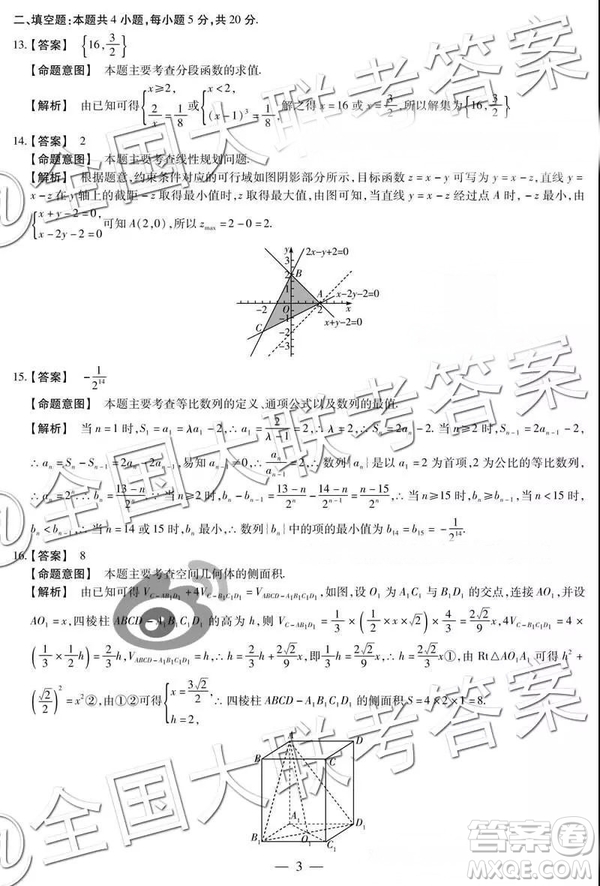 二、填空题:本题共4小题,每小题5分,共20分.
13.【答案】 {16, 3/2}
【命题意图】 本题主要考查分段函数的求值.
【解析】 由已知可得{x≥2, 2/x=1/8 或{x<2, (x-1)³=1/8, 解之得x=16或x=3/2,所以解集为{16, 3/2}
14.【答案】 2
【命题意图】 本题主要考查线性规划问题.
【解析】 根据题意,约束条件对应的可行域如图阴影部分所示,目标函数z=x-y可写为y=x-z,直线y
=x-z在y轴上的截距-z取得最小值时,z取得最大值,由图可知,当直线y=x-z经过点A时,-z最小,由
{x+y-2=0, x-2y-2=0 可知A(2,0),所以z_max=2-0=2.
y
2x-y+2=0
3
2
B
1
A
x-2y-2=0
-2
2
x
-1
C
-2
-3
x+y-2=0
15.【答案】 -1/2¹⁴
【命题意图】 本题主要考查等比数列的定义、通项公式以及数列的最值.
【解析】 当n=1时,S₁=a₁=λa₁-2,∴a₁=2/(λ-1)=2,∴λ=2,∴S_n=2a_n-2.当n≥2时,S_{n-1}=2a_{n-1}-2,
∴a_n=S_n-S_{n-1}=2a_n-2a_{n-1},易知a_{n-1}≠0,∴a_n/a_{n-1}=2,∴数列{a_n}是以a₁=2为首项,2为公比的等比数列,
∴a_n=2ⁿ,∴b_n=(13-n)/2ⁿ,b_n-b_{n-1}=(13-n)/2ⁿ-(14-n)/2ⁿ⁻¹=(n-15)/2ⁿ,∴当n≥15时,b_n≥b_{n-1},当n<15时,
b_n<b_{n-1},∴当n=14或15时,b_n最小,∴数列{b_n}中的项的最小值为b₁₄=b₁₅=-1/2¹⁴.
16.【答案】 8
【命题意图】 本题主要考查空间几何体的侧面积.
【解析】 由已知可得V_{C-AB₁D₁}+4V_{C-B₁C₁D₁}=V_{ABCD-A₁B₁C₁D₁},如图,设O₁为A₁C₁与B₁D₁的交点,连接AO₁,并设
AO₁=x,四棱柱ABCD-A₁B₁C₁D₁的高为h,则V_{C-AB₁D₁}=1/3×(2√2/3 x)=2√2/9 x,4V_{C-B₁C₁D₁}=4×
(1/3×1/2 h)=2/3 h,V_{ABCD-A₁B₁C₁D₁}=h,∴2/3 h+2√2/9 x=h,即1/3 h=2√2/9 x①,由Rt△AO₁A₁可得h²+
(√2/2)²=x²②,由①②可得{x=3√2/2, h=2, ∴四棱柱ABCD-A₁B₁C₁D₁的侧面积S=4×2×1=8.
A
D
B
C
A₁
D₁
O₁
B₁
C₁
— 3 —
@全国大联考答案
答案圈
MXQE.COM